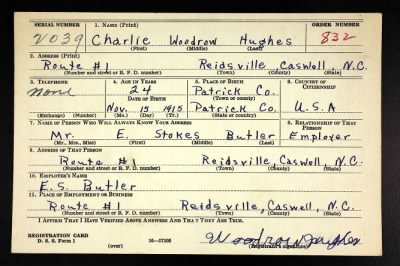 SERIAL NUMBER 1. NAME (Print) ORDER NUMBER
2039 Charlie Woodrow Hughes 832
(First) (Middle) (Last)
2. ADDRESS (Print)
Route #1 Reidsville, Caswell, N.C.
(Number and street or R. F. D. number) (Town) (County) (State)
3. TELEPHONE 4. AGE IN YEARS 5. PLACE OF BIRTH 6. COUNTRY OF CITIZENSHIP
None 24 Patrick Co.
DATE OF BIRTH (Town or county)
Nov. 15 1915 Patrick Co. U.S.A
(Exchange) (Number) (Mo.) (Day) (Yr.) (State or country)
7. NAME OF PERSON WHO WILL ALWAYS KNOW YOUR ADDRESS 8. RELATIONSHIP OF THAT PERSON
Mr. E. Stokes Butler Employer
(Mr., Mrs., Miss) (First) (Middle) (Last)
9. ADDRESS OF THAT PERSON
Route #1 Reidsville, Caswell, N.C.
(Number and street or R. F. D. number) (Town) (County) (State)
10. EMPLOYER'S NAME
E.S. Butler
11. PLACE OF EMPLOYMENT OR BUSINESS
Route #1 Reidsville, Caswell, N.C.
(Number and street or R. F. D. number) (Town) (County) (State)
I AFFIRM THAT I HAVE VERIFIED ABOVE ANSWERS AND THAT THEY ARE TRUE.
REGISTRATION CARD
D. S. S. Form 1 (over) 16—17105 Woodrow Hughes
(Registrant's signature)